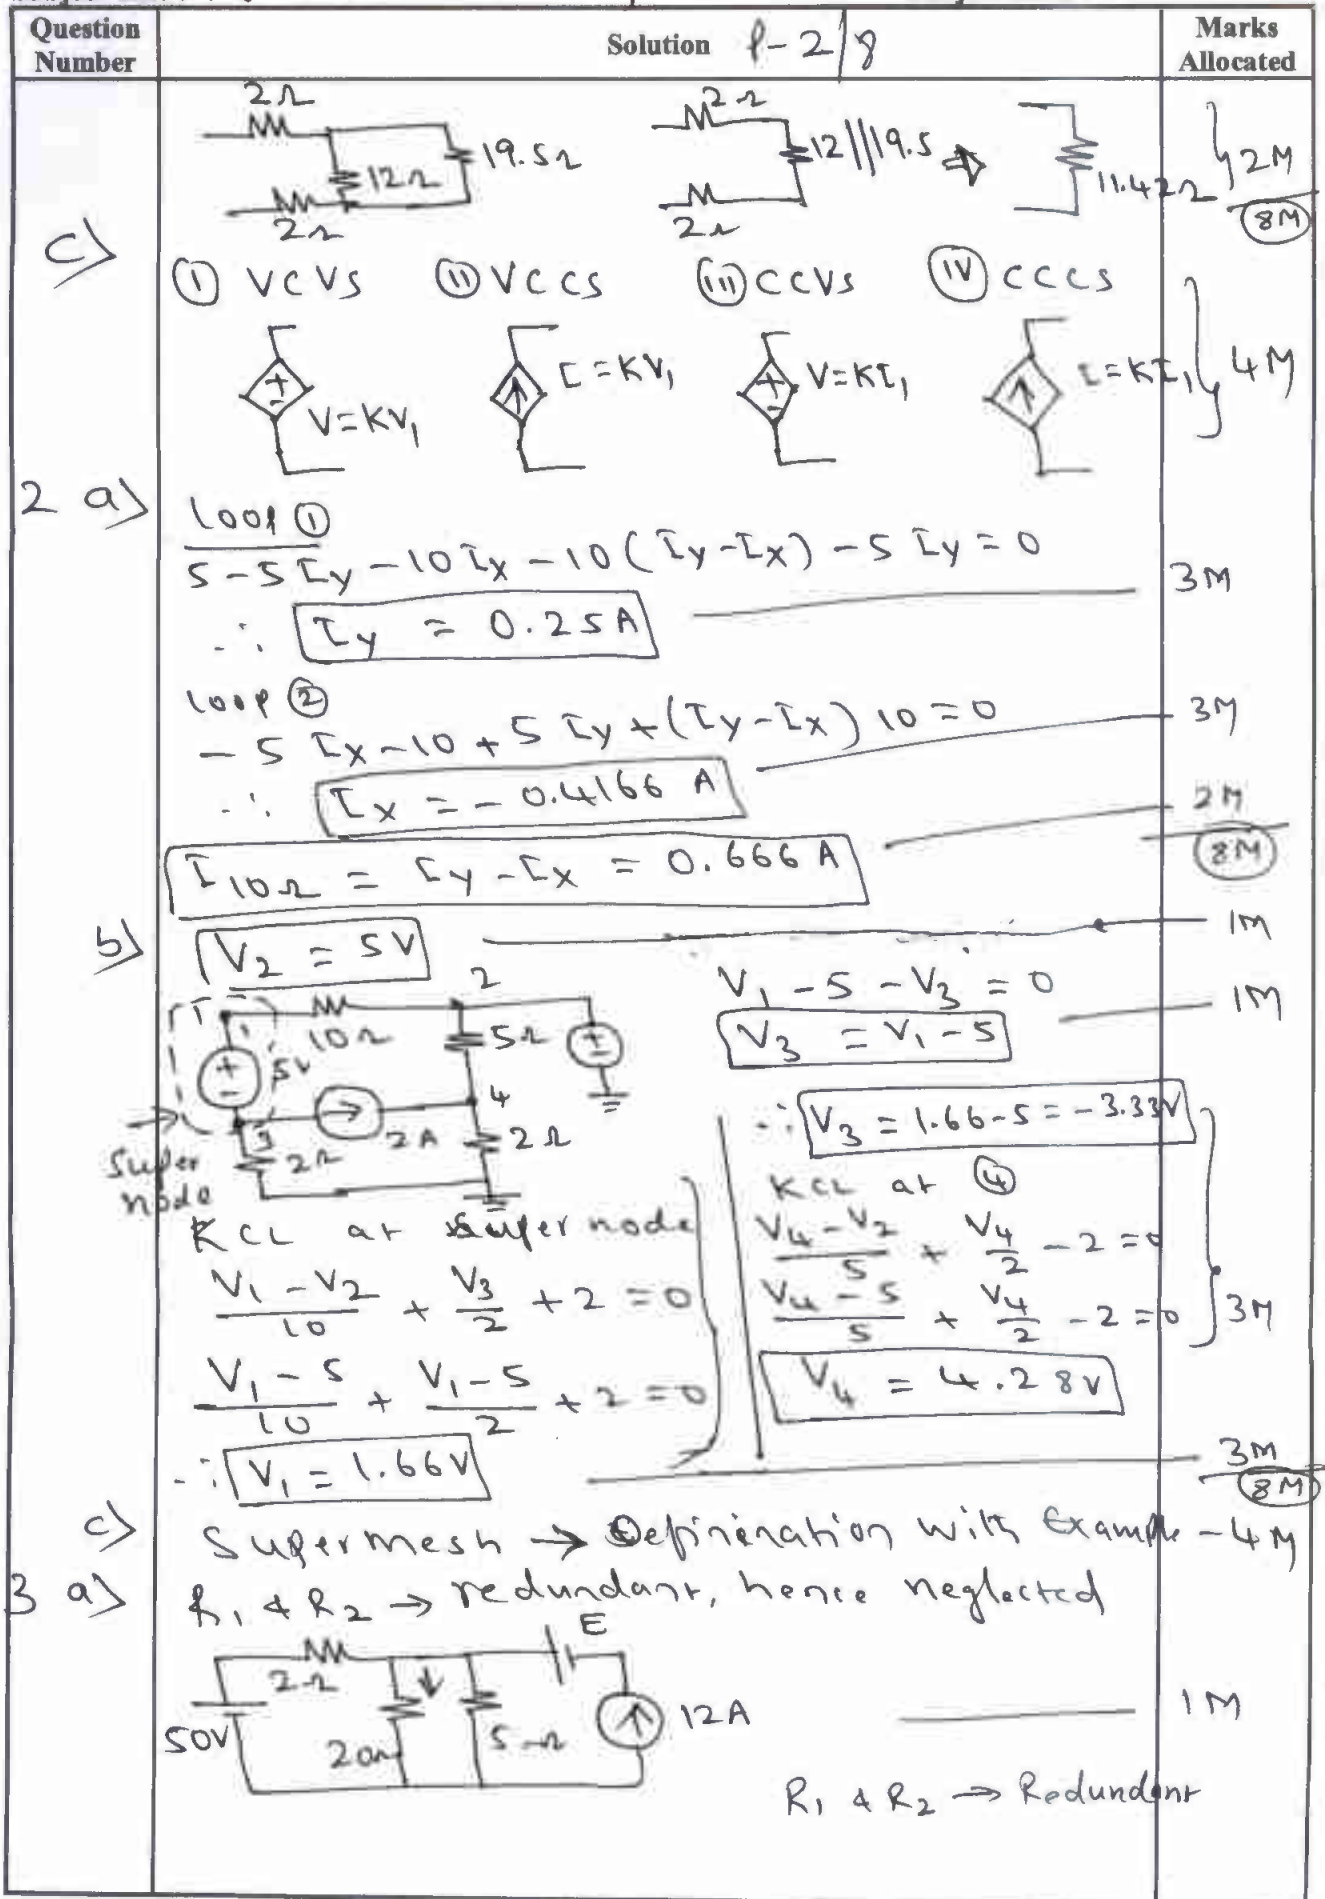 Question Number | Solution P-2/8 | Marks Allocated
2Ω 12Ω 19.5Ω 2Ω
2Ω 12||19.5 ⇒ 11.42Ω 2Ω
2M
8M
c)
(i) VCVS (ii) VCCS (iii) CCVS (iv) CCCS
V=KV₁ I=KV₁ V=KI₁ I=KI₁ 4M
2 a)
Loop ①
5-5Iy-10Ix-10(Iy-Ix)-5Iy=0
3M
∴ Iy = 0.25A
Loop ②
-5Ix-10+5Iy+(Iy-Ix)10=0 3M
∴ Ix = -0.4166 A
2M
8M
I10Ω = Iy-Ix = 0.666 A
b) V₂ = 5V 1M
V₁-5-V₃=0 1M
V₃ = V₁-5
1 10Ω 2 5Ω
5V
3 2A 4
2Ω 2Ω
Super node
KCL at Super node
(V₁-V₂)/10 + V₃/2 + 2 = 0
(V₁-5)/10 + (V₁-5)/2 + 2 = 0
∴ V₁ = 1.66V
∴ V₃ = 1.66-5 = -3.33V
KCL at ④
(V₄-V₂)/5 + V₄/2 - 2 = 0
(V₄-5)/5 + V₄/2 - 2 = 0 3M
V₄ = 4.28V
3M
8M
c) Supermesh → Definination with Example - 4M
3 a) R₁ & R₂ → redundant, hence neglected
E
2Ω
50V 20Ω 5Ω 12A 1M
R₁ & R₂ → Redundant